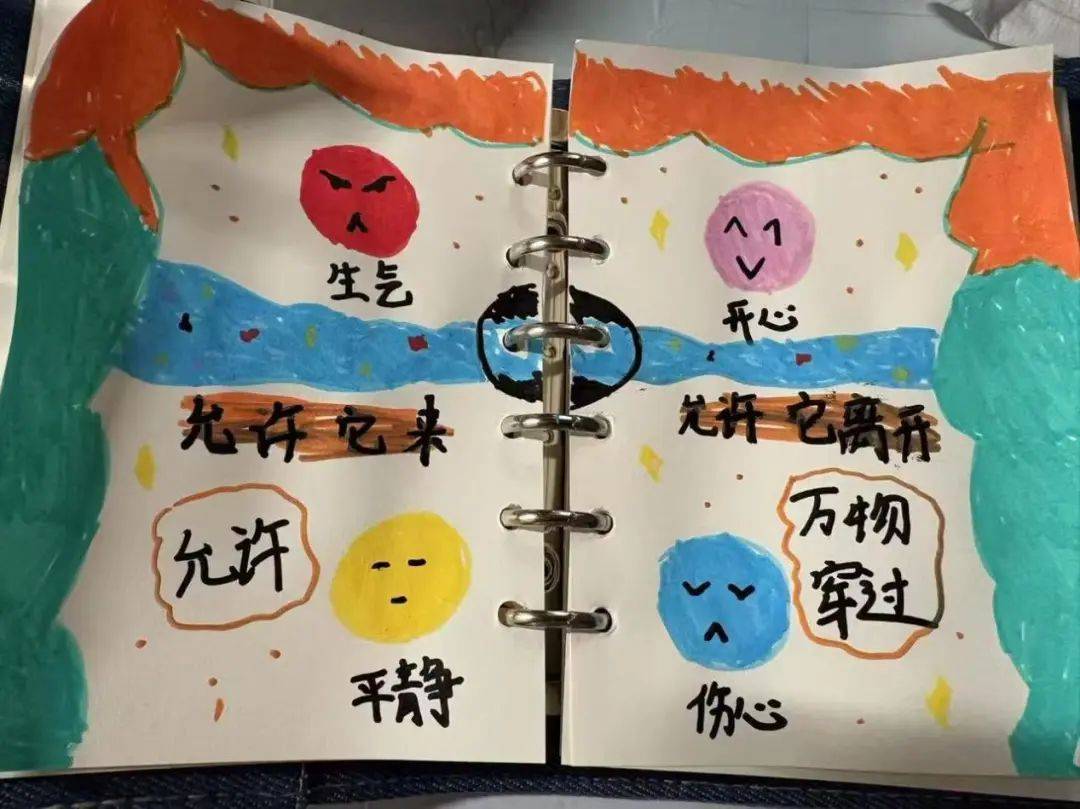 生气
开心
允许它来
允许它离开
允许
万物
穿过
平静
伤心